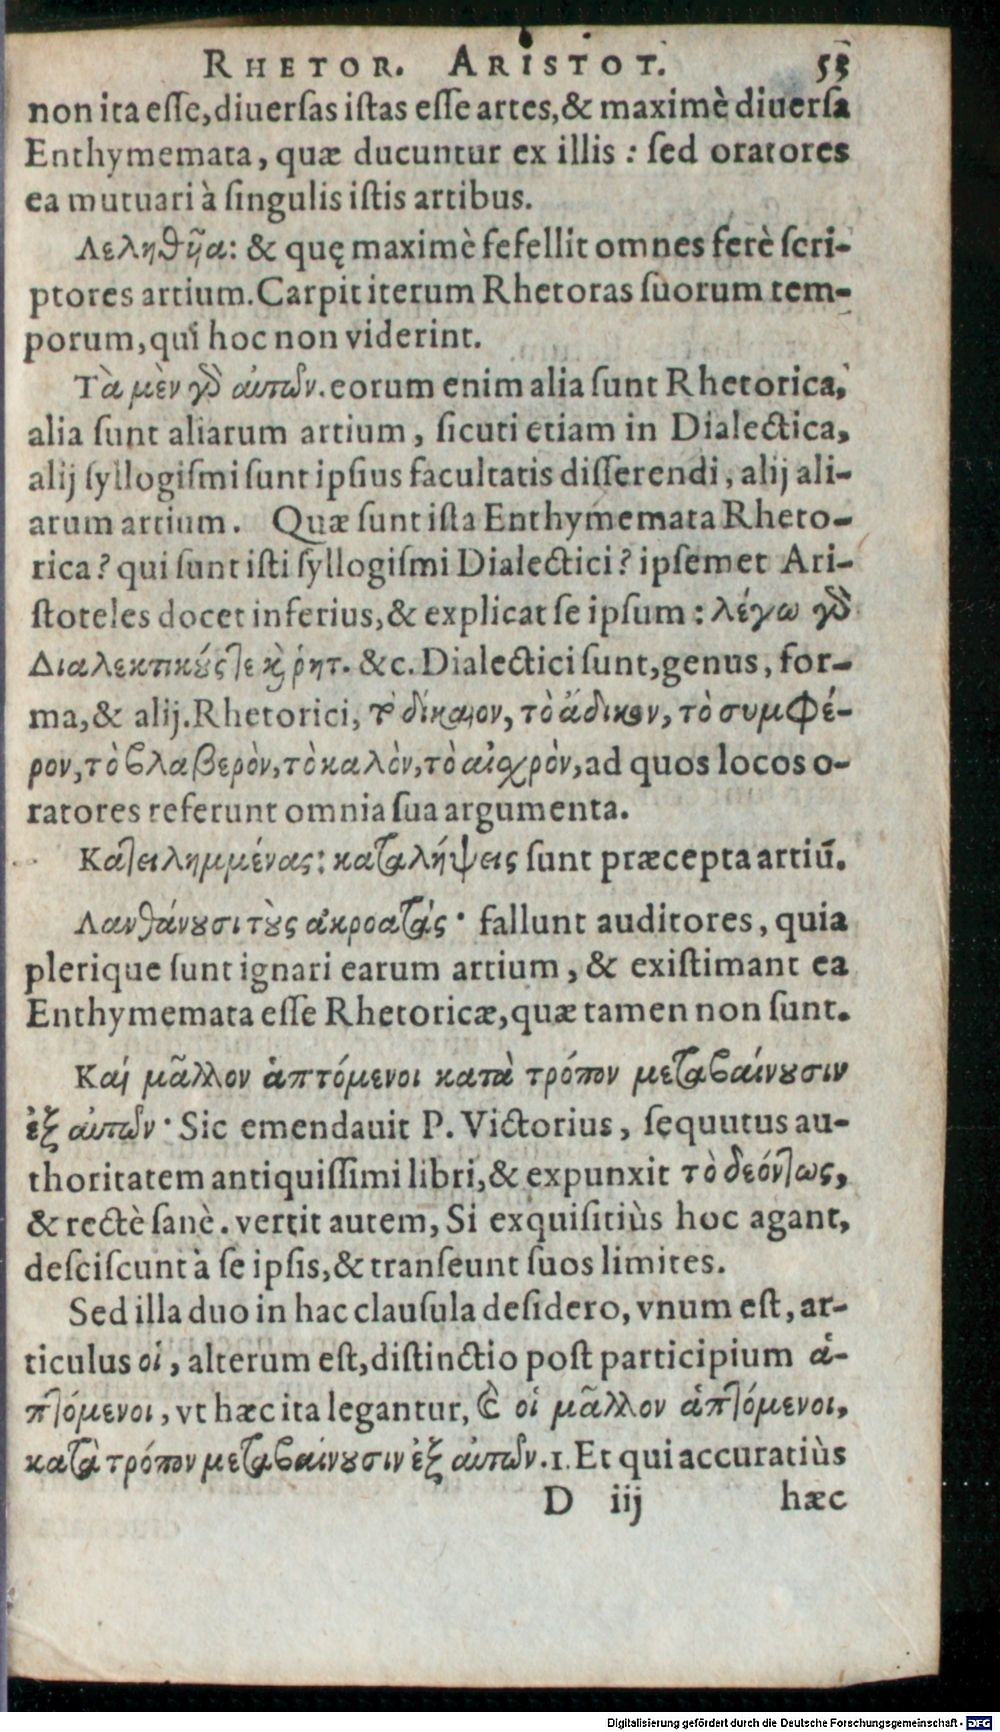 RHETOR. ARISTOT. 53
non ita esse, diuersas istas esse artes, & maximè diuersa
Enthymemata, quæ ducuntur ex illis : sed oratores
ea mutuari à singulis istis artibus.
Λεληθῆα: & quę maximè fefellit omnes ferè scri-
ptores artium. Carpit iterum Rhetoras suorum tem-
porum, qui hoc non viderint.
Τὰ μὲν γδ αὐτῶν. eorum enim alia sunt Rhetorica,
alia sunt aliarum artium, sicuti etiam in Dialectica,
alij syllogismi sunt ipsius facultatis disserendi, alij ali-
arum artium. Quæ sunt ista Enthymemata Rheto-
rica? qui sunt isti syllogismi Dialectici? ipsemet Ari-
stoteles docet inferius, & explicat se ipsum : λέγω γδ
Διαλεκτικούς τε κ̀ ῥητ. &c. Dialectici sunt, genus, for-
ma, & alij. Rhetorici, τὸ δίκαιον, τὸ ἄδικον, τὸ συμφέ-
ρον, τὸ βλαβερὸν, τὸ καλὸν, τὸ αἰσχρὸν, ad quos locos o-
ratores referunt omnia sua argumenta.
Κατειλημμένας: καταλήψεις sunt præcepta artiū.
Λανθάνουσι τοὺς ἀκροατάς· fallunt auditores, quia
plerique sunt ignari earum artium, & existimant ea
Enthymemata esse Rhetoricæ, quæ tamen non sunt.
Καὶ μᾶλλον ἁπτόμενοι κατὰ τρόπον μεταβαίνουσιν
ἐξ αὐτῶν· Sic emendauit P. Victorius, sequutus au-
thoritatem antiquissimi libri, & expunxit τὸ δεόντως,
& rectè sanè. vertit autem, Si exquisitiùs hoc agant,
desciscunt à se ipsis, & transeunt suos limites.
Sed illa duo in hac clausula desidero, vnum est, ar-
ticulus οἱ, alterum est, distinctio post participium ἁ-
πτόμενοι, vt hæc ita legantur, Καὶ οἱ μᾶλλον ἁπτόμενοι,
κατὰ τρόπον μεταβαίνουσιν ἐξ αὐτῶν. 1. Et qui accuratiùs
D iij hæc
Digitalisierung gefördert durch die Deutsche Forschungsgemeinschaft - DFG